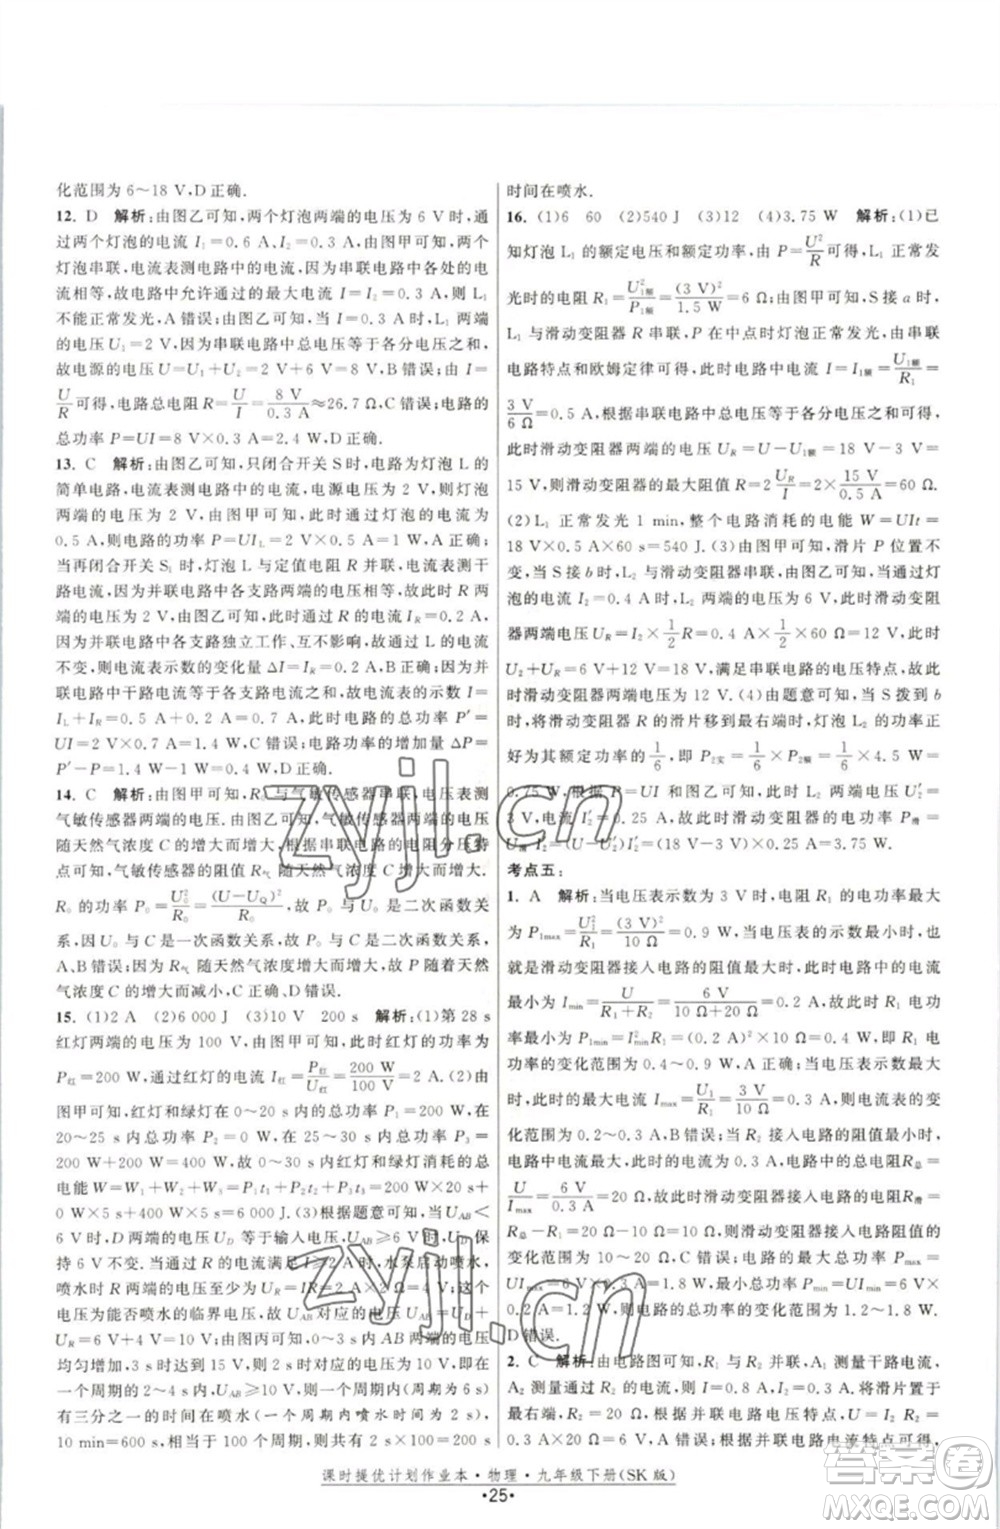 化范围为 6～18 V,D 正确.
12. D 解析:由图乙可知,两个灯泡两端的电压为 6 V 时,通
过两个灯泡的电流 I₁=0.6 A、I₂=0.4 A,由图甲可知,两
灯泡串联,电流表测电路中的电流,因为串联电路各处的电
流相等,故电路中允许通过的最大电流 I=I₂=0.4 A,则 L₁
不能正常发光,A 错误;由图乙可知,
的电压 U₁=2 V,因为串联电路总电压等于各分电压之和,
故电源的电压 U=U₁+U₂=2 V+6 V=8 V,B 错误;由 I=
U/R 可得,电路总电阻 R=U/I=8 V/0.3 A≈26.7 Ω,C 错误;电路的
总功率 P=UI=8 V×0.3 A=2.4 W,D 正确.
13. C 解析:由图甲可知,只闭合开关 S 时,电路为灯泡 L 的
简单电路,电流表测电路中的电流,电源电压等于灯泡
两端的电压为 2 V,由图乙可知,此时通过灯泡的电流为
0.5 A,则电路的功率 P=UI_L=2 V×0.5 A=1 W,A 错误;
再闭合开关 S₁ 时,灯泡 L 与定值电阻 R 并联,电流表测干
路电流,因为并联电路中各支路两端的电压相等,故此时 R 两
端的电压为 2 V,由图乙可知,通过 R 的电流 I_R=0.2 A,
因为并联电路中各支路独立工作、互不影响,故通过 L 的电流
不变,则电流表示数的变化量 ΔI=I_R=0.2 A,B 错误;因为并
联电路中干路电流等于各支路电流之和,故电流表的示数 I=
I_L+I_R=0.5 A+0.2 A=0.7 A,此时电路的总功率 P′=
UI=2 V×0.7 A=1.4 W,C 错误;电路功率的增加量 ΔP=
P′−P=1.4 W−1 W=0.4 W,D 正确.
14. C 解析:由图甲可知,R₀ 与气敏传感器串联,电压表测
气敏传感器两端的电压.由图乙可知,气敏传感器两端的电压
随天然气浓度 C 的增大而增大,根据串联电路的分压特点可知,
气敏传感器的阻值 R气 随天然气浓度 C 增大而增大.
R₀ 的功率 P₀=U₀²/R₀=(U−U_Q)²/R₀,故 P₀ 与 U₀ 成二次函数关
系,因 U₀ 与 C 是一次函数关系,故 P₀ 与 C 成二次函数关系,
A、B 错误;因 R气 随天然气浓度 C 的增大而增大,故 P 随天然
气浓度 C 的增大而减小,C 正确,D 错误.
15. (1)2 A (2)6 000 J (3)10 V 200 s 解析:(1)第 28 s
红灯两端的电压为 100 V,由图甲可知,红灯的功率为
P红=200 W,通过红灯的电流 I红=P红/U红=200 W/100 V=2 A.(2)由
图甲可知,红灯和绿灯 0～20 s 内的总功率 P₁=200 W,
20～25 s 内的总功率 P₂=0 W,在 25～30 s 内的总功率 P₃=
200 W+200 W=400 W,前 30 s 内红灯和绿灯消耗的总
电能 W=W₁+W₂+W₃=P₁t₁+P₂t₂+P₃t₃=200 W×20 s+
0 W×5 s+400 W×5 s=6 000 J.(3)根据题意可知,当 U_AB<
6 V 时,D 两端的电压 U_D 等于输入电压,当 U_AB≥6 V,U_D 保
持 6 V 不变.当通过 R 的电流满足 I≥2 A 时,水泵启动喷水,
喷水时 R 两端的电压至少为 U_R=IR=2 A×2 Ω=4 V.这个
电压为能否喷水的临界电压,故 U_AB 对应的电压 U=U_D+
U_R=6 V+4 V=10 V,由图丙可知,0～3 s 内 AB 两端的电压
均匀增加到 15 V,则从 0 到 10 V 用时 2 s,由图丙可知,在
一个周期的 6 s 内,U_AB≥10 V 的时间为 2 s,则一个周期内
有三分之一的时间在喷水(一个周期内喷水时间为 2 s),
10 min=600 s,相当于 100 个周期,则共有 2 s×100=200 s
时间在喷水.
16. (1)6 60 (2)540 J (3)12 (4)3.75 W 解析:(1)已
知灯泡 L₁ 的额定电压和额定功率,由 P=U²/R 可得,L₁ 正常
发光时的电阻 R₁=U₁额²/P₁额=(3 V)²/1.5 W=6 Ω;由图甲可知,S 接 a 时,
L₁ 与滑动变阻器 R 串联,P 在中点时灯泡正常发光,由串联
电路特点和欧姆定律可得,此时电路中的电流 I=I₁额=U₁额/R₁=
3 V/6 Ω=0.5 A,根据串联电路中总电压等于各分电压之和可得,
此时滑动变阻器两端的电压 U_R=U−U₁额=18 V−3 V=
15 V,则滑动变阻器的最大阻值 R=2 U_R/I=2×15 V/0.5 A=60 Ω.
(2)L₁ 正常发光 1 min,整个电路消耗的电能 W=UIt=
18 V×0.5 A×60 s=540 J.(3)由图甲可知,滑片 P 位置不
变,当 S 接 b 时,L₂ 与滑动变阻器串联,由图乙可知,当通过灯
泡的电流为 0.4 A 时,L₂ 两端的电压为 6 V,此时滑动变阻
器两端电压 U_R=I₂×1/2 R=0.4 A×1/2×60 Ω=12 V,此时
U₂+U_R=6 V+12 V=18 V,满足串联电路电压特点,故此时
滑动变阻器两端电压为 12 V.(4)由题意可知,当 S 拨到 b
时,将滑动变阻器 R 的滑片移到最右端时,灯泡 L₂ 的功率正
好为其额定功率的 1/6,即 P₂实=1/6 P₂额=1/6×4.5 W=
0.75 W,根据 P=UI 和图乙可知,此时 L₂ 两端的电压 U₂′=
3 V,电流 I₂′=0.25 A,此时滑动变阻器消耗的电功率 P滑=
(U−U₂′)I₂′=(18 V−3 V)×0.25 A=3.75 W.
考点五:
1. A 解析:当电压表示数为 3 V 时,电阻 R₁ 的电功率最大,
P₁max=U₁²/R₁=(3 V)²/10 Ω=0.9 W,当电压表的示数最小时,也
就是滑动变阻器接入电路的阻值最大时,电路中的电流
I_min=U/(R₁+R₂)=6 V/(10 Ω+20 Ω)=0.2 A,此时 R₁ 电功
率最小,P₁min=I²min R₁=(0.2 A)²×10 Ω=0.4 W,即 R₁ 电
功率的变化范围为 0.4～0.9 W,A 正确;电路中的电流
最大时,电流表的示数 I_max=U₁/R₁=3 V/10 Ω=0.3 A,则电流表的变
化范围为 0.2～0.3 A,B 错误;当 R₂ 接入电路的阻值最小时,
此时电路中的电流为 0.3 A,此时电路中的总电阻 R总=
U/I_max=6 V/0.3 A=20 Ω,此时滑动变阻器接入电路的电阻 R滑=
R总−R₁=20 Ω−10 Ω=10 Ω,则滑动变阻器接入电路阻值的
变化范围为 10～20 Ω,C 错误;电路的最大功率 P_max=
UI_max=6 V×0.3 A=1.8 W,电路的最小功率 P_min=UI_min=6 V×
0.2 A=1.2 W,则电路的总功率的变化范围为 1.2～1.8 W,
D 错误.
2. C 解析:由电路图可知,R₁ 与 R₂ 并联,A₁ 测量干路电流,
A₂ 测量 R₁ 的电流,电压表测量电源电压,当将滑片于最
右端向左移动时,根据并联电路电压特点可知,电压表示数
课时提优计划作业本·物理·九年级下册(SK 版)
·25·
zyjl.cn
zyjl.cn
答案圈
MXQE.COM